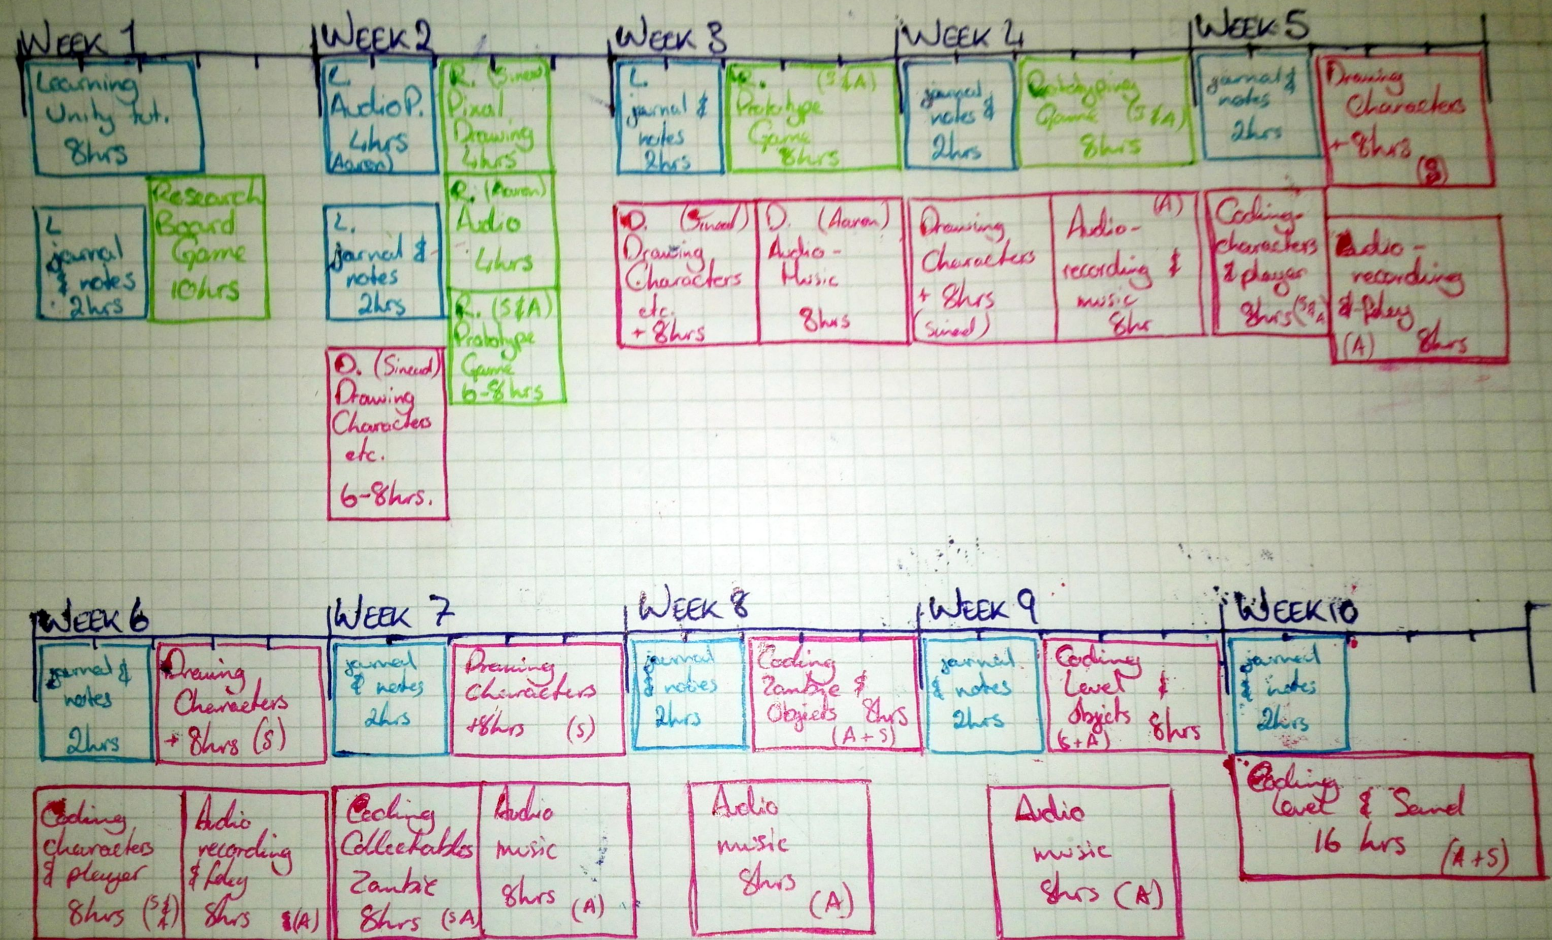 WEEK 1
Learning
Unity tut.
8hrs
L
journal
& notes
2hrs
Research
Board
Game
10hrs
WEEK 2
L.
Audio P.
4hrs
(Aaron)
R. (Sinead)
Pixal
Drawing
4hrs
L.
journal &
notes
2hrs
R. (Aaron)
Audio
4hrs
R. (S&A)
Prototype
Game
6-8hrs
D. (Sinead)
Drawing
Characters
etc.
6-8hrs.
WEEK 3
L.
journal &
notes
2hrs
R. (S&A)
Prototype
Game
8hrs
D. (Sinead)
Drawing
Characters
etc.
+8hrs
D. (Aaron)
Audio-
Music
8hrs
WEEK 4
journal
notes &
2hrs
Prototyping
Game (S&A)
8hrs
Drawing
Characters
+ 8hrs
(Sinead)
(A)
Audio-
recording &
music
8hr
WEEK 5
journal &
notes
2hrs
Drawing
Characters
+8hrs
(S)
Coding-
characters
& player
8hrs (S&A
Audio-
recording
& foley
(A) 8hrs
WEEK 6
journal &
notes
2hrs
Drawing
Characters
+ 8hrs (S)
Coding
characters
& player
8hrs (S&A)
Audio
recording
& foley
8hrs (A)
WEEK 7
journal
& notes
2hrs
Drawing
Characters
+8hrs (S)
Coding
Collectables
Zambie
8hrs (SA)
Audio
music
8hrs
(A)
WEEK 8
journal
& notes
2hrs
Coding
Zambie &
Objects 8hrs
(A+S)
Audio
music
8hrs
(A)
WEEK 9
journal
& notes
2hrs
Coding
Level &
Objects 8hrs
(S+A)
Audio
music
8hrs (A)
WEEK 10
journal
& notes
2hrs
Coding
Level & Sound
16 hrs
(A+S)